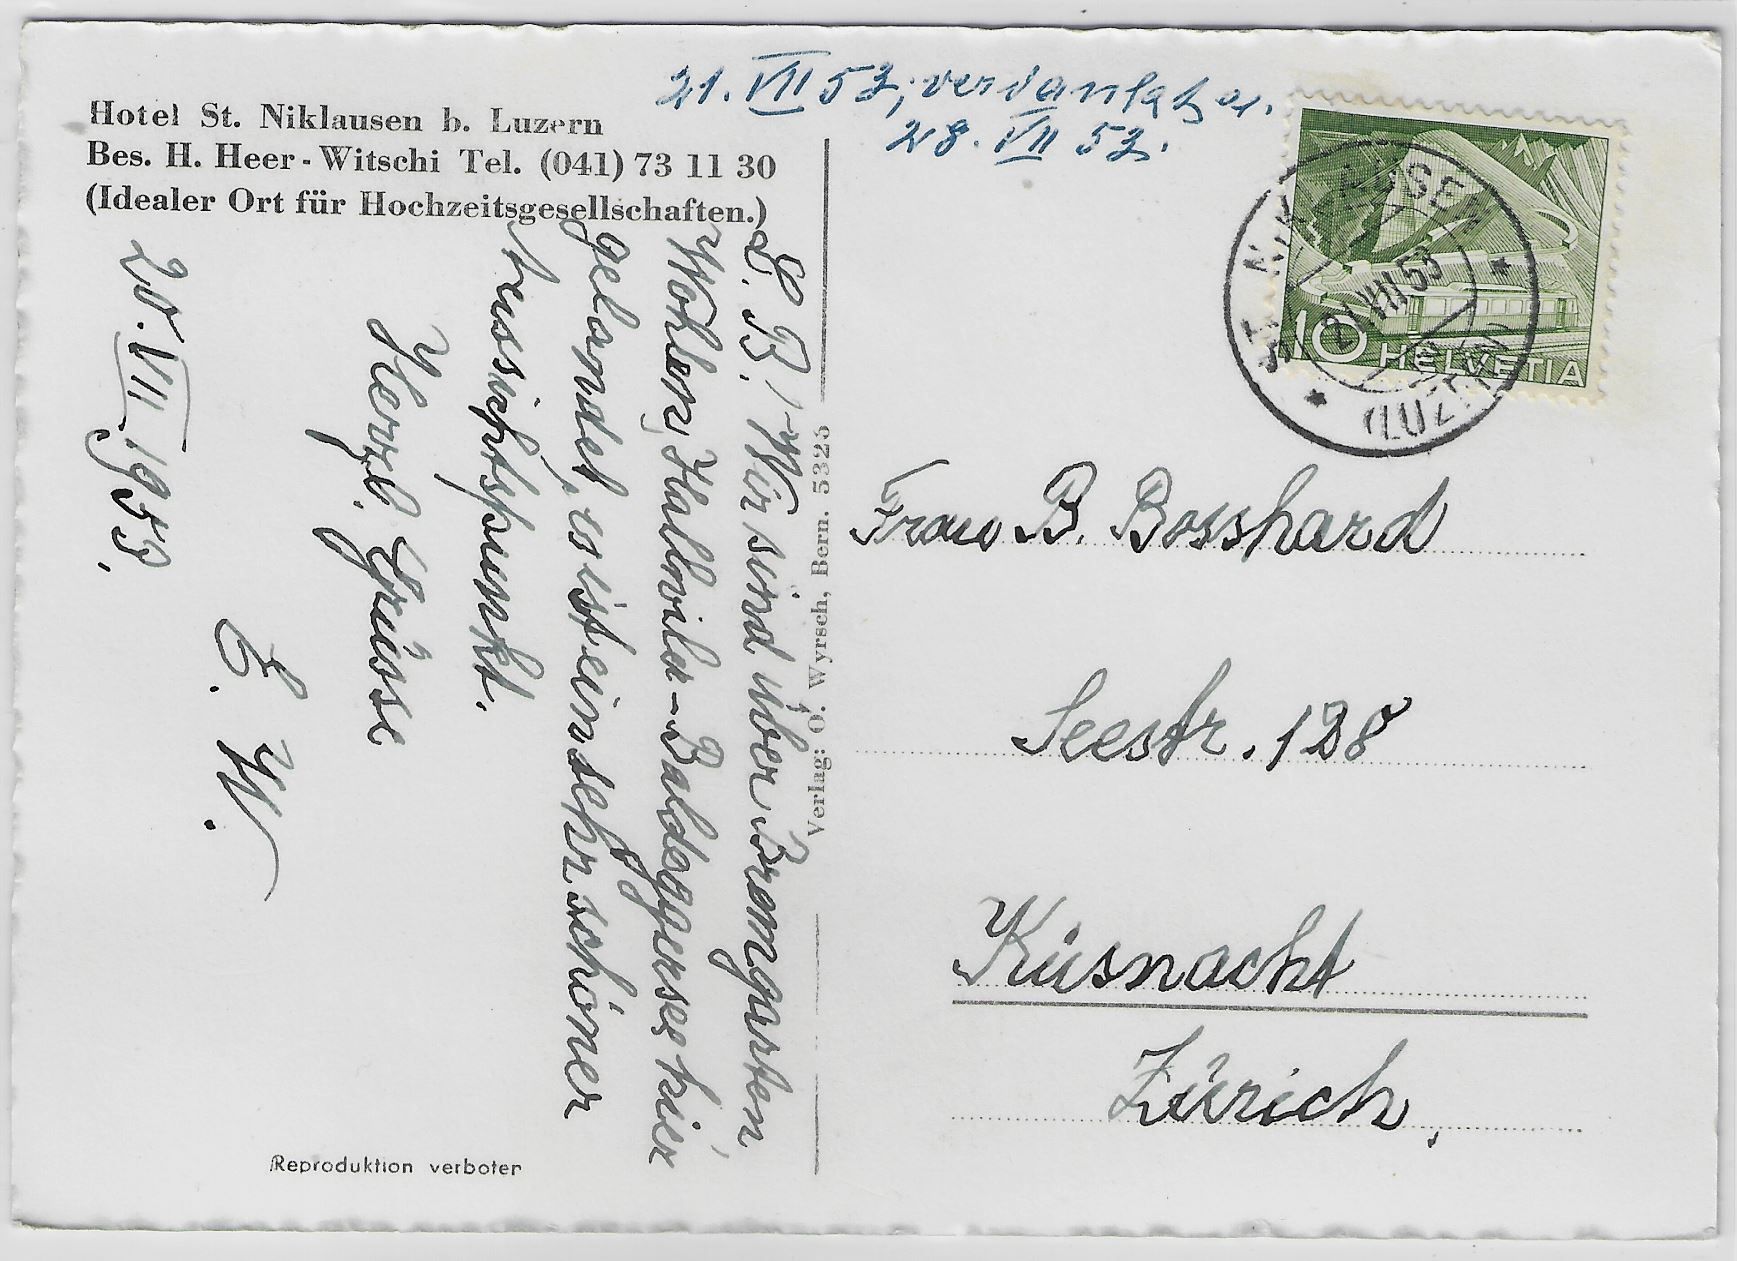 Hotel St. Niklausen b. Luzern
Bes. H. Heer - Witschi Tel. (041) 73 11 30
(Idealer Ort für Hochzeitsgesellschaften.)
21. VII 53, verdankt
28. VII 53.
HELVETIA
10
ST. NIKLAUSEN
21 VII 53
(LUZERN)
20. VII 1953.
L. B. Wir sind über Bremgarten,
Wohlen, Hallwiler-Baldeggersee hier
gelandet, es ist ein sehr schöner
Aussichtspunkt.
Herzl. Grüsse
E. W.
Verlag: O. Wyrsch, Bern. 5325
Frau B. Bosshard
Seestr. 128
Küsnacht
Zürich,
Reproduktion verboten